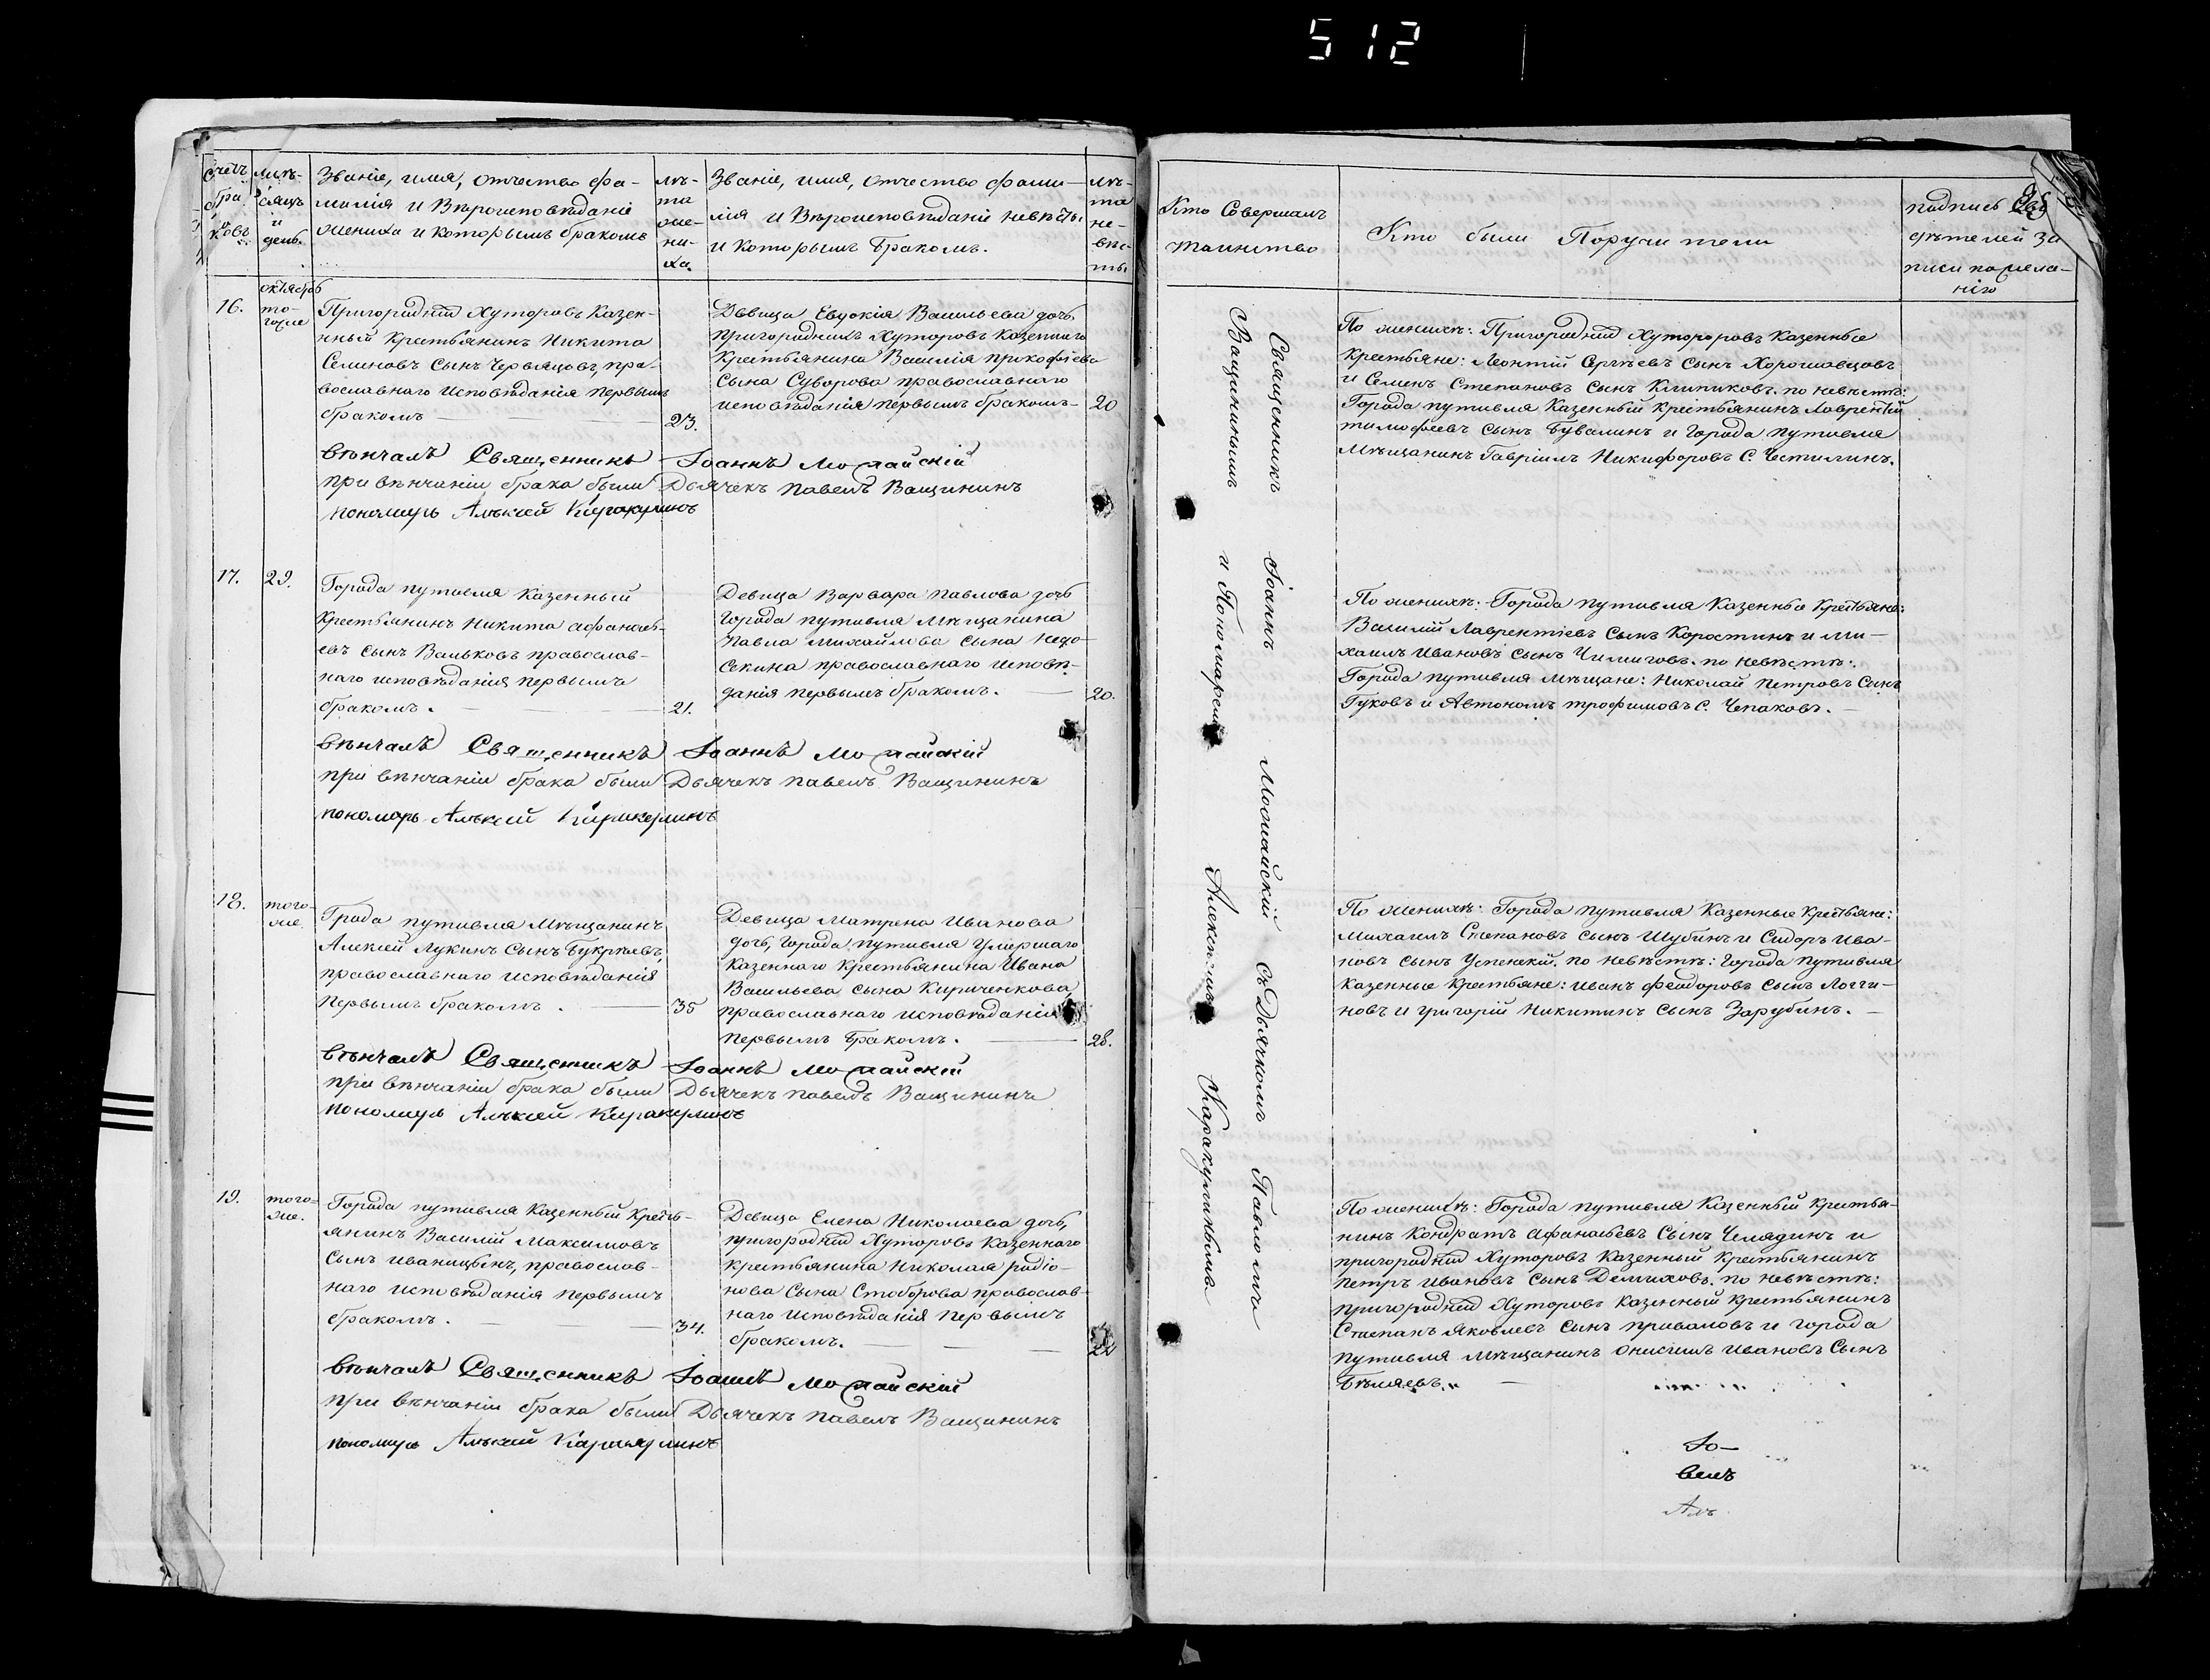 512
Счетъ бра-ковъ
мѣ-сяцъ и день.
Званіе, имя, отчество фа-
милія и Вѣроисповѣданіе
жениха и которымъ бракомъ
лѣ-та же-ни-ха.
Званіе, имя, отчество фами-
лія и Вѣроисповѣданіе невѣсты
и которымъ бракомъ.
лѣ-та не-вѣс-ты
16.
октября
то-
гоже
Пригородних Хуторовъ Казен-
ный Крестьянинъ Никита
Семиновъ сынъ Червяцовъ, пра-
вославнаго исповѣданія первымъ
бракомъ
23.
Дѣвица Евдокія Васильева дочь,
пригородныхъ Хуторовъ Казеннаго
Крестьянина Василія прокофіева
сына Суворова православнаго
исповѣданія первымъ бракомъ
20
вѣнчалъ Священникъ Іоаннъ Можайскій
при вѣнчаніи брака были Дьячекъ Павелъ Ващининъ
пономарь Алѣксей Каракулинъ
17.
29.
Города путивля казенный
Крестьянинъ Никита афанась-
евъ сынъ Вальковъ православ-
наго исповѣданія первымъ
бракомъ.
21.
Девица Варвара Павлова дочь
города путивля Мѣщанина
Павла Михайлова сына Недо-
секина православнаго исповѣ-
данія первымъ бракомъ.
20.
вѣнчалъ Священникъ Іоаннъ Можайскій
при вѣнчаніи брака были Дьячекъ павелъ Ващининъ
пономарь Алѣксей Каракулинъ
18.
того-
же.
Града путивля Мѣщанинъ
Алексѣй Лукинъ сынъ Букрѣевъ,
православнаго исповѣданія
первымъ бракомъ.
35
Девица Матрена Иванова
дочь, города путивля умершаго
казеннаго Крестьянина Ивана
Васильева сына Кириченкова,
православнаго исповѣданія
первымъ бракомъ.
28.
вѣнчалъ Священникъ Іоаннъ Можайскій
при вѣнчаніи брака были Дьячекъ павелъ Ващининъ
пономарь Алѣксей Каракулинъ
19.
того-
же.
Города путивля Казенный Кресть-
янинъ Василій Максимовъ
сынъ Иваницынъ, православ-
наго исповѣданія первымъ
бракомъ.
34.
Девица Елена Николаева дочь,
пригородних Хуторовъ Казеннаго
крестьянина Николая радіо-
нова сына Стоборова православ-
наго исповѣданія первымъ
бракомъ.
22
вѣнчалъ Священникъ Іоаннъ Можайскій
при вѣнчаніи брака были Дьячекъ павелъ Ващининъ
пономарь Алѣксей Каракулинъ
Кто Совершалъ
таинство
Кто были Поручители
подпись Сви
дѣтелей за
писи по жела-
нію
Священникъ Іоаннъ Можайскій съ Дьячкомъ Павломъ
Ващининымъ и Пономаремъ Алексѣемъ Каракулинымъ
По женихѣ: Пригородних Хуторовъ Казенные
Крестьяне: Леонтій Сергѣевъ сынъ Хорошавцовъ
и Семенъ Степановъ сынъ Клитиковъ. по невѣстѣ:
Города путивля Казенный крестьянинъ Лаврентій
тимофеевъ сынъ Бувалинъ и города путивля
Мѣщанинъ Гавріилъ Никифоровъ С. Честилинъ.
По женихѣ: Города путивля Казенные Крестьяне:
Василій Лаврентіевъ сынъ Коростинъ и Ми-
хаилъ Ивановъ сынъ Чимиговъ. по невѣстѣ:
Города путивля Мѣщане: Николай Петровъ Сынъ
Гуковъ и Автономъ трофимовъ С. Чепаковъ.
По женихѣ: Города путивля Казенные крестьяне:
Михаилъ Степановъ сынъ Шубинъ и Сидоръ Ива-
новъ сынъ Успенскій. по невѣстѣ: города путивля
Казенные крестьяне: Иванъ феодоровъ сынъ Логги-
новъ и григорій Никитинъ сынъ Зарубинъ.
По женихѣ: Города путивля Казенный крестья-
нинъ Кондратъ афанасьевъ Сынъ Челядинъ и
пригородних Хуторовъ казенный крестьянинъ
петръ Ивановъ сынъ Демиховъ. по невѣстѣ:
пригородних Хуторовъ казенный крестьянинъ
Степанъ Яковлевъ сынъ приваловъ и города
путивля Мѣщанинъ Онисимъ Ивановъ Сынъ
Бѣляевъ.
Іо-
велъ
Алѣ